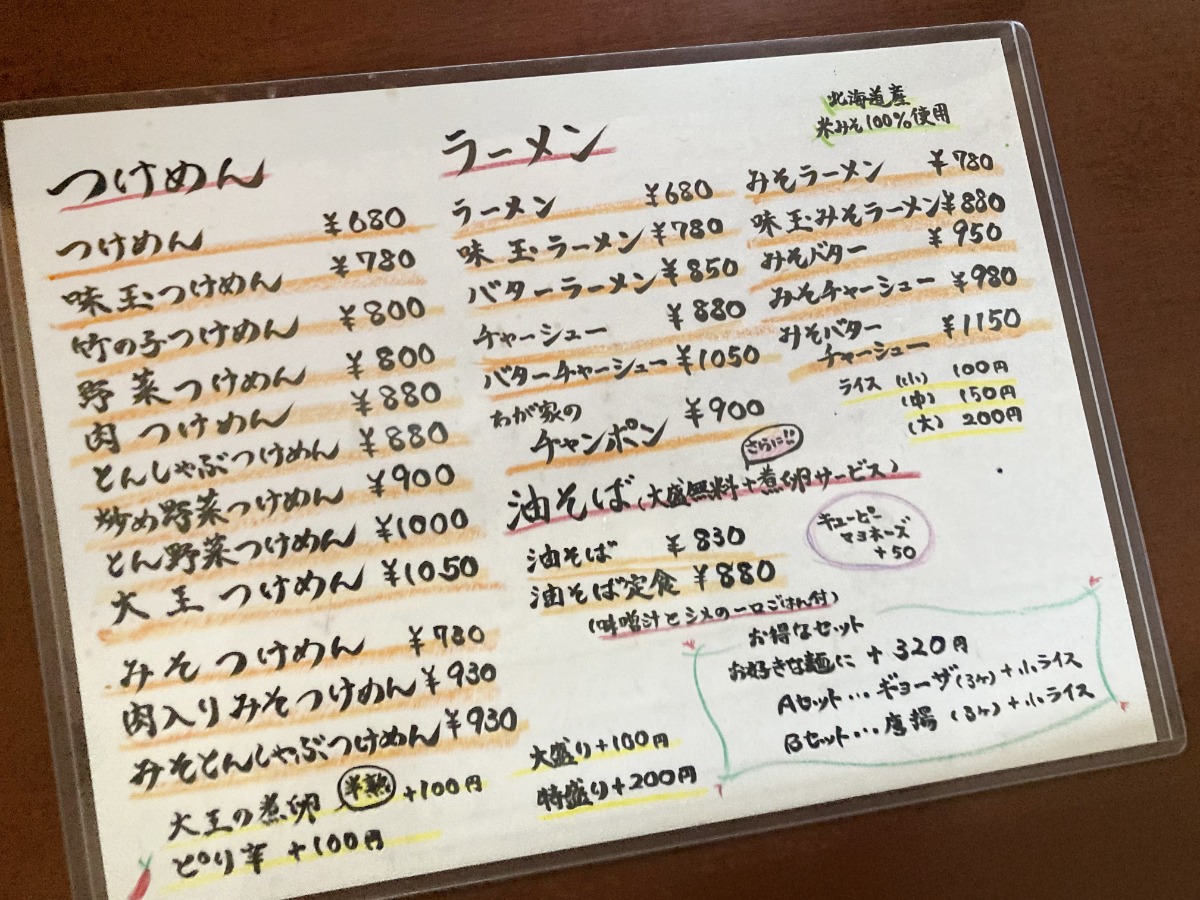 つけめん
つけめん ¥680
味玉つけめん ¥780
竹の子つけめん ¥800
野菜つけめん ¥800
肉つけめん ¥880
とんしゃぶつけめん ¥880
炒め野菜つけめん ¥900
とん野菜つけめん ¥1000
大王つけめん ¥1050
みそつけめん ¥780
肉入りみそつけめん ¥930
みそとんしゃぶつけめん ¥930
大王の煮卵 半熟 +100円
ピリ辛 +100円
ラーメン
ラーメン ¥680
味玉ラーメン ¥780
バターラーメン ¥850
チャーシュー ¥880
バターチャーシュー ¥1050
わが家の
チャンポン ¥900
北海道産
米みそ100%使用
みそラーメン ¥780
味玉みそラーメン ¥880
みそバター ¥950
みそチャーシュー ¥980
みそバター
チャーシュー ¥1150
ライス (小) 100円
(中) 150円
(大) 200円
さらに!!
油そば (大盛無料+煮卵サービス)
油そば ¥830
油そば定食 ¥880
(味噌汁とシメの一口ごはん付)
キューピー
マヨネーズ
+50
大盛り+100円
特盛り+200円
お得なセット
お好きな麺に +320円
Aセット…ギョーザ(3ヶ)+小ライス
Bセット…唐揚(3ヶ)+小ライス